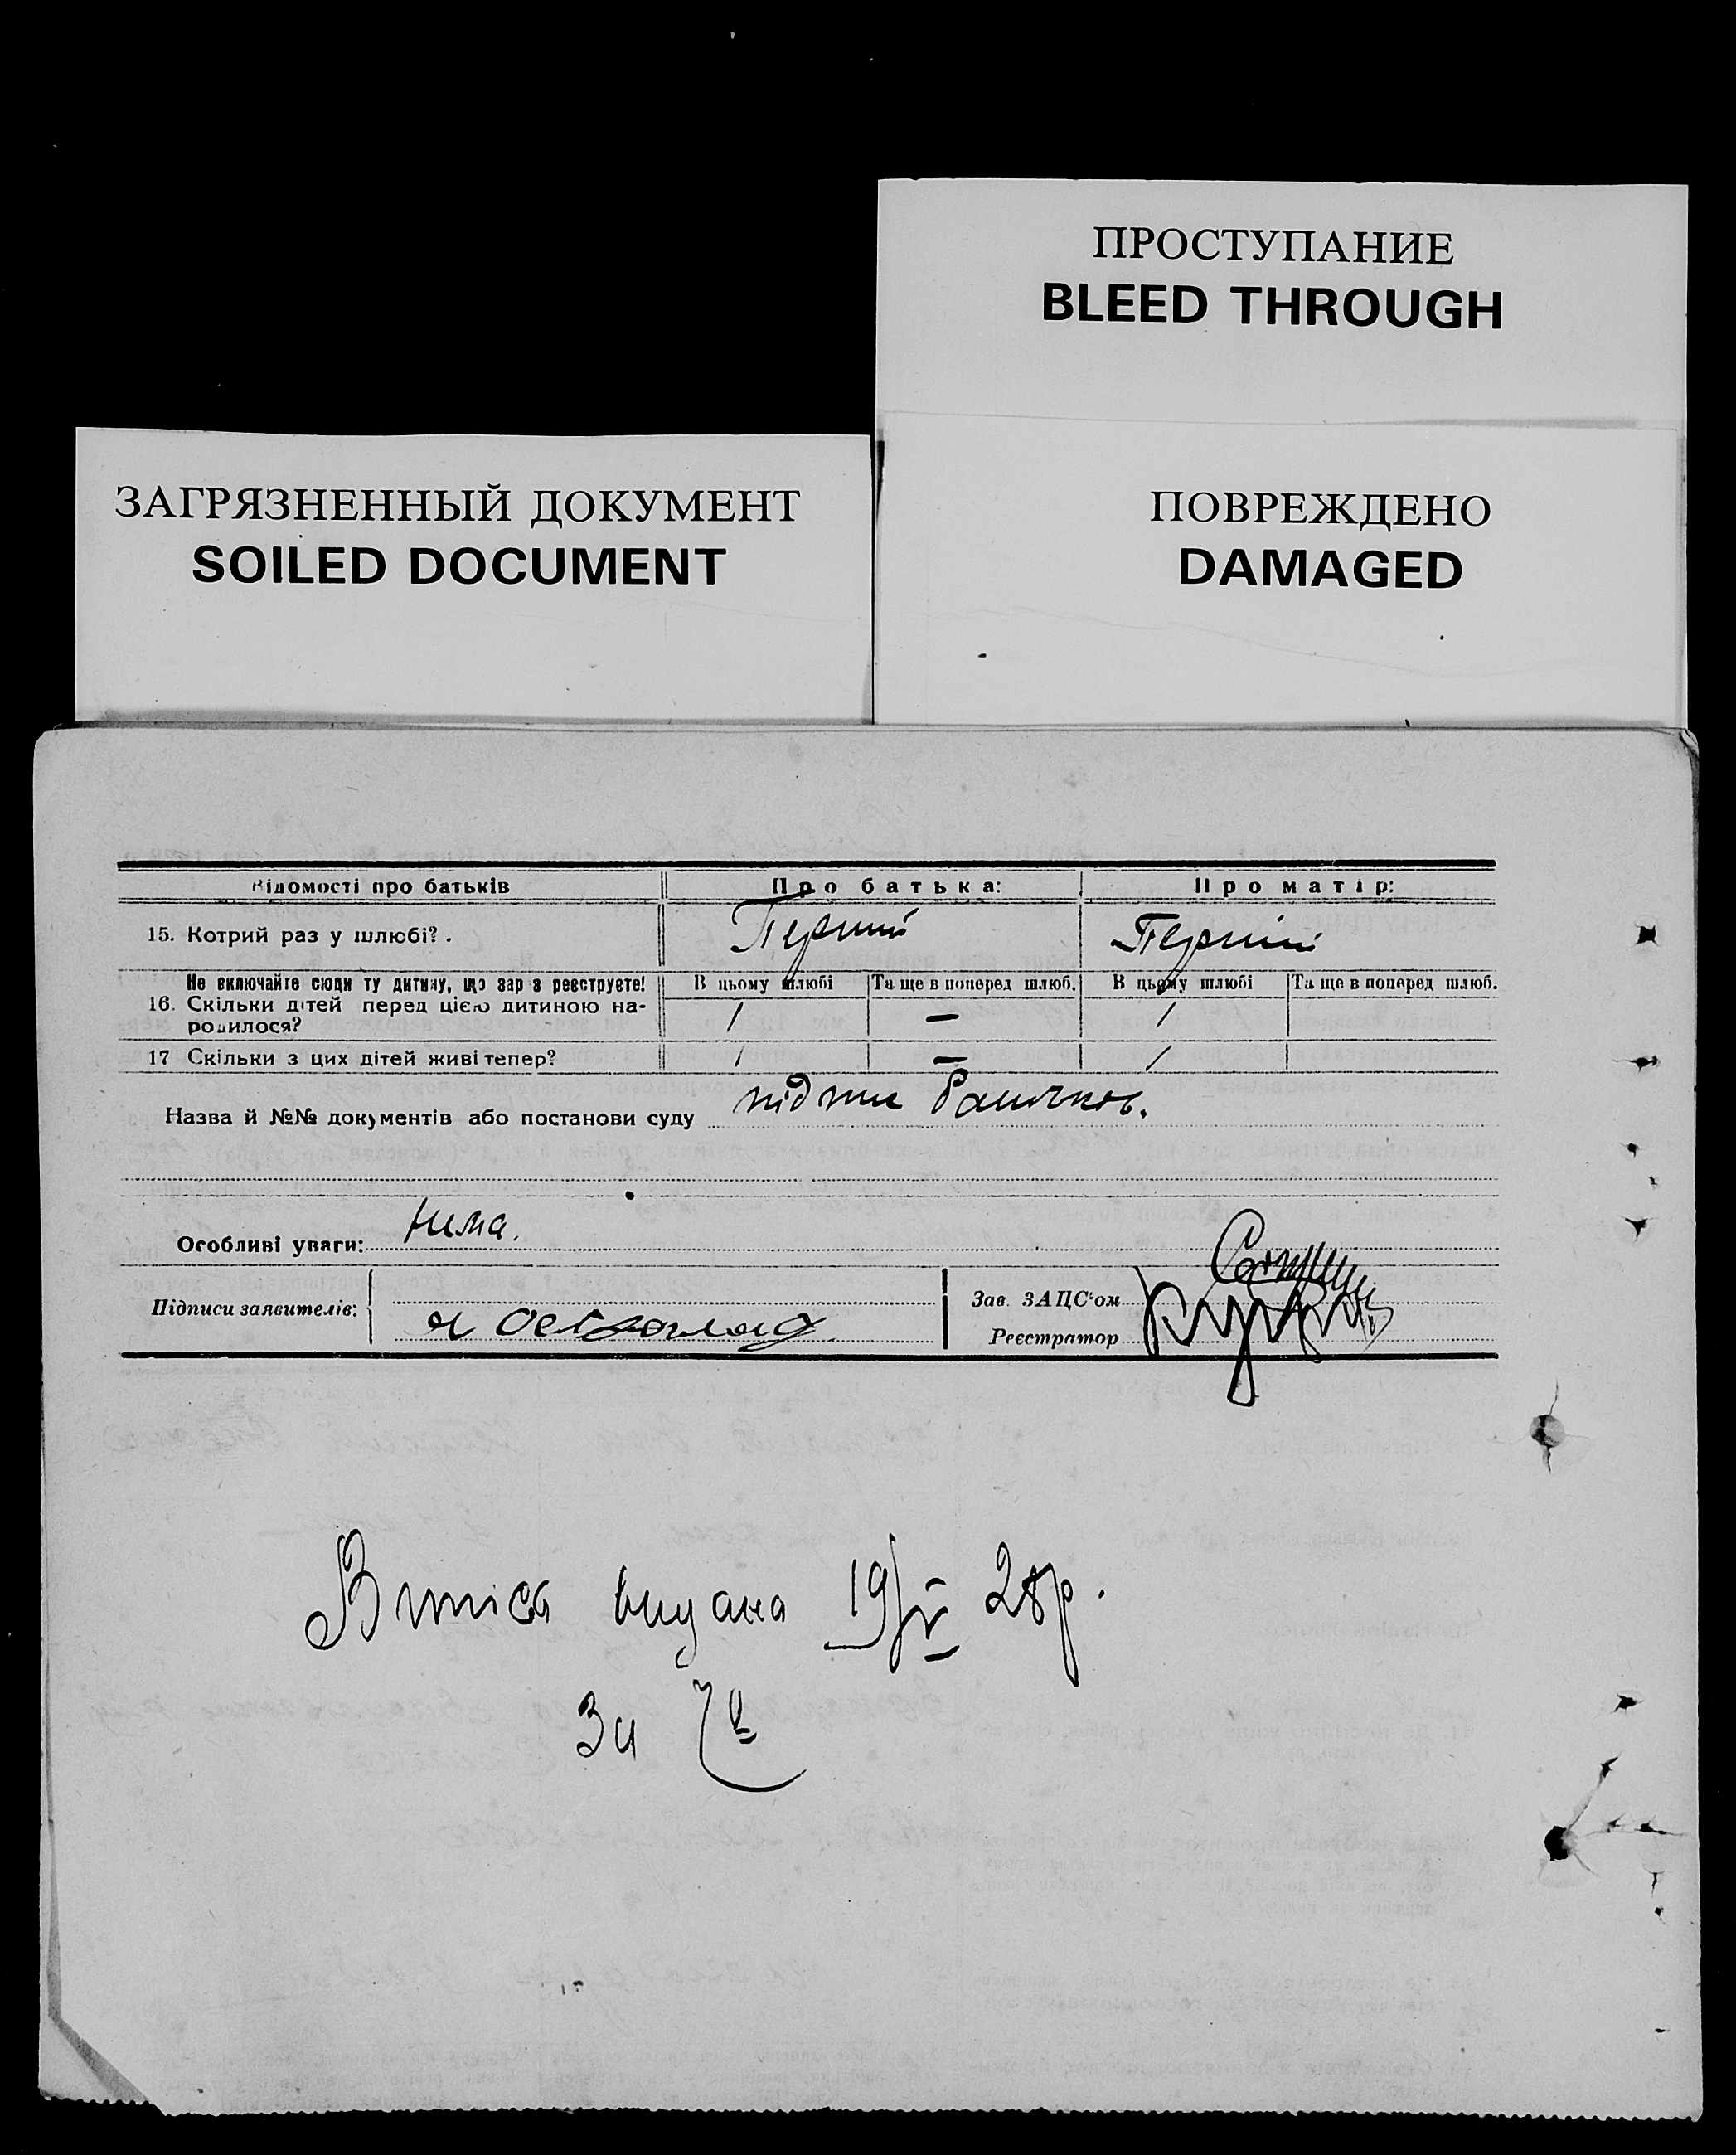 ПРОСТУПАНИЕ
BLEED THROUGH
ЗАГРЯЗНЕННЫЙ ДОКУМЕНТ
SOILED DOCUMENT
ПОВРЕЖДЕНО
DAMAGED
Відомості про батьків Про батька: Про матір:
15. Котрий раз у шлюбі? . Перший Перший
Не включайте сюди ту дитину, що зар з реєструєте! В цьому шлюбі Та ще в поперед шлюб. В цьому шлюбі Та ще в поперед шлюб.
16. Скільки дітей перед цією дитиною на- 1 — 1
родилося?
17 Скільки з цих дітей живі тепер? 1 — 1
Назва й №№ документів або постанови суду
Особливі уваги: Нима.
Підписи заявителів:
Зав. ЗАЦС'ом
Реєстратор
Витісь видана 19/V 28р.
За